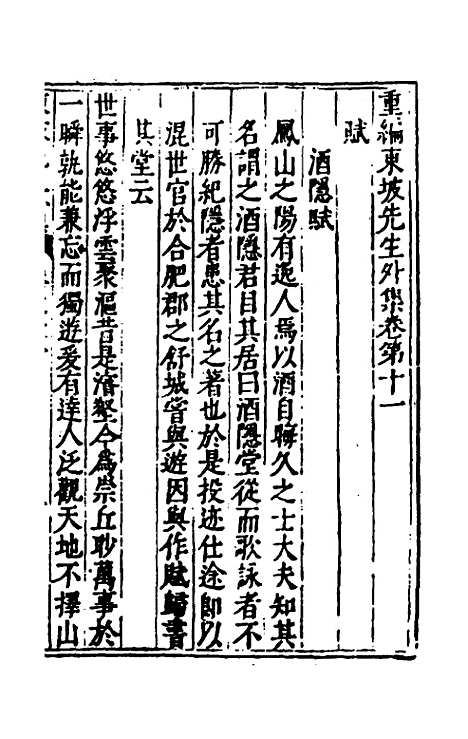 重編東坡先生外集卷第十一
賦
酒隱賦
鳳山之陽有逸人焉以酒自晦久之士大夫知其
名謂之酒隱君目其居曰酒隱堂從而歌詠者不
可勝紀隱者患其名之著也於是投迹仕途即以
混世官於合肥郡之舒城嘗與遊因與作賦歸書
其堂云
世事悠悠浮雲聚漚昔是濬壑今為崇丘眇萬事於
一瞬孰能兼忘而獨遊爰有達人泛觀天地不擇山